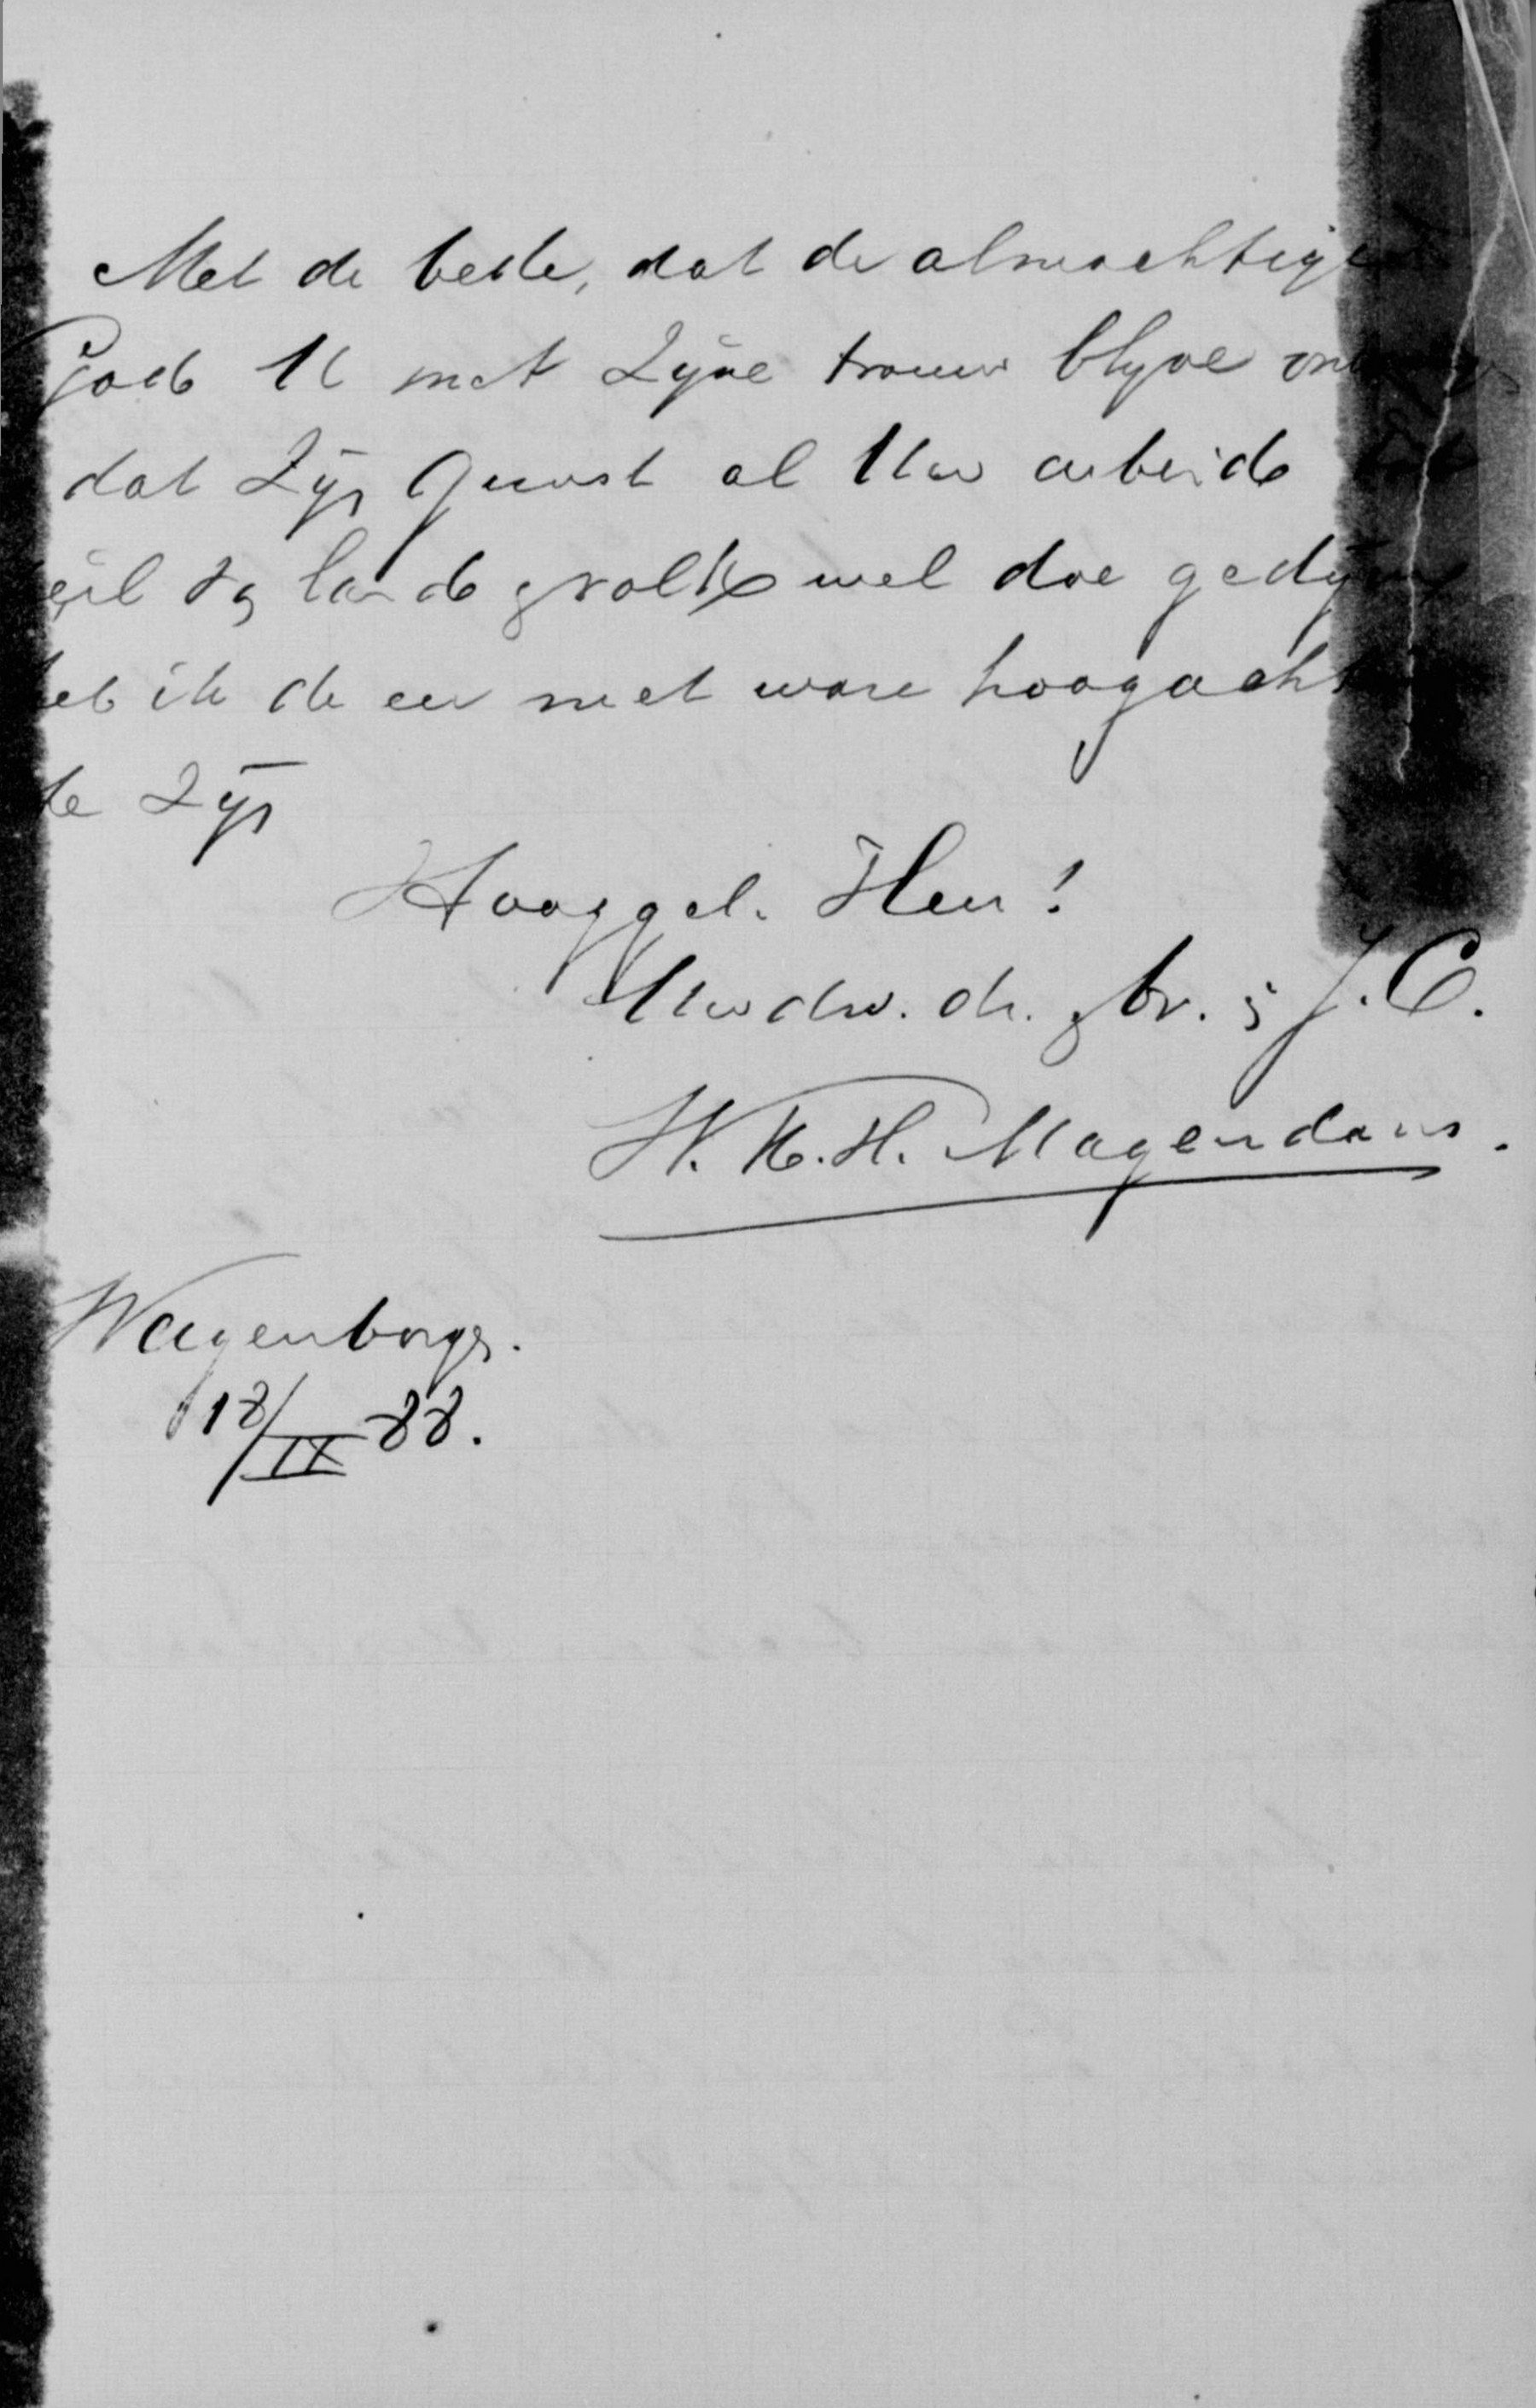 Met de bede, dat de almachtige
God U met Zijne trouw blijve
dat Zijn gunst al Uw arbeid
land & volk wel doe gedijen
heb ik de eer met ware hoogacht
te zijn
Hooggel. Heer!
Uwdw. dr. & br. in J. C.
W. K. H. Magendans.
Wagenborgen.
18/IX 88.